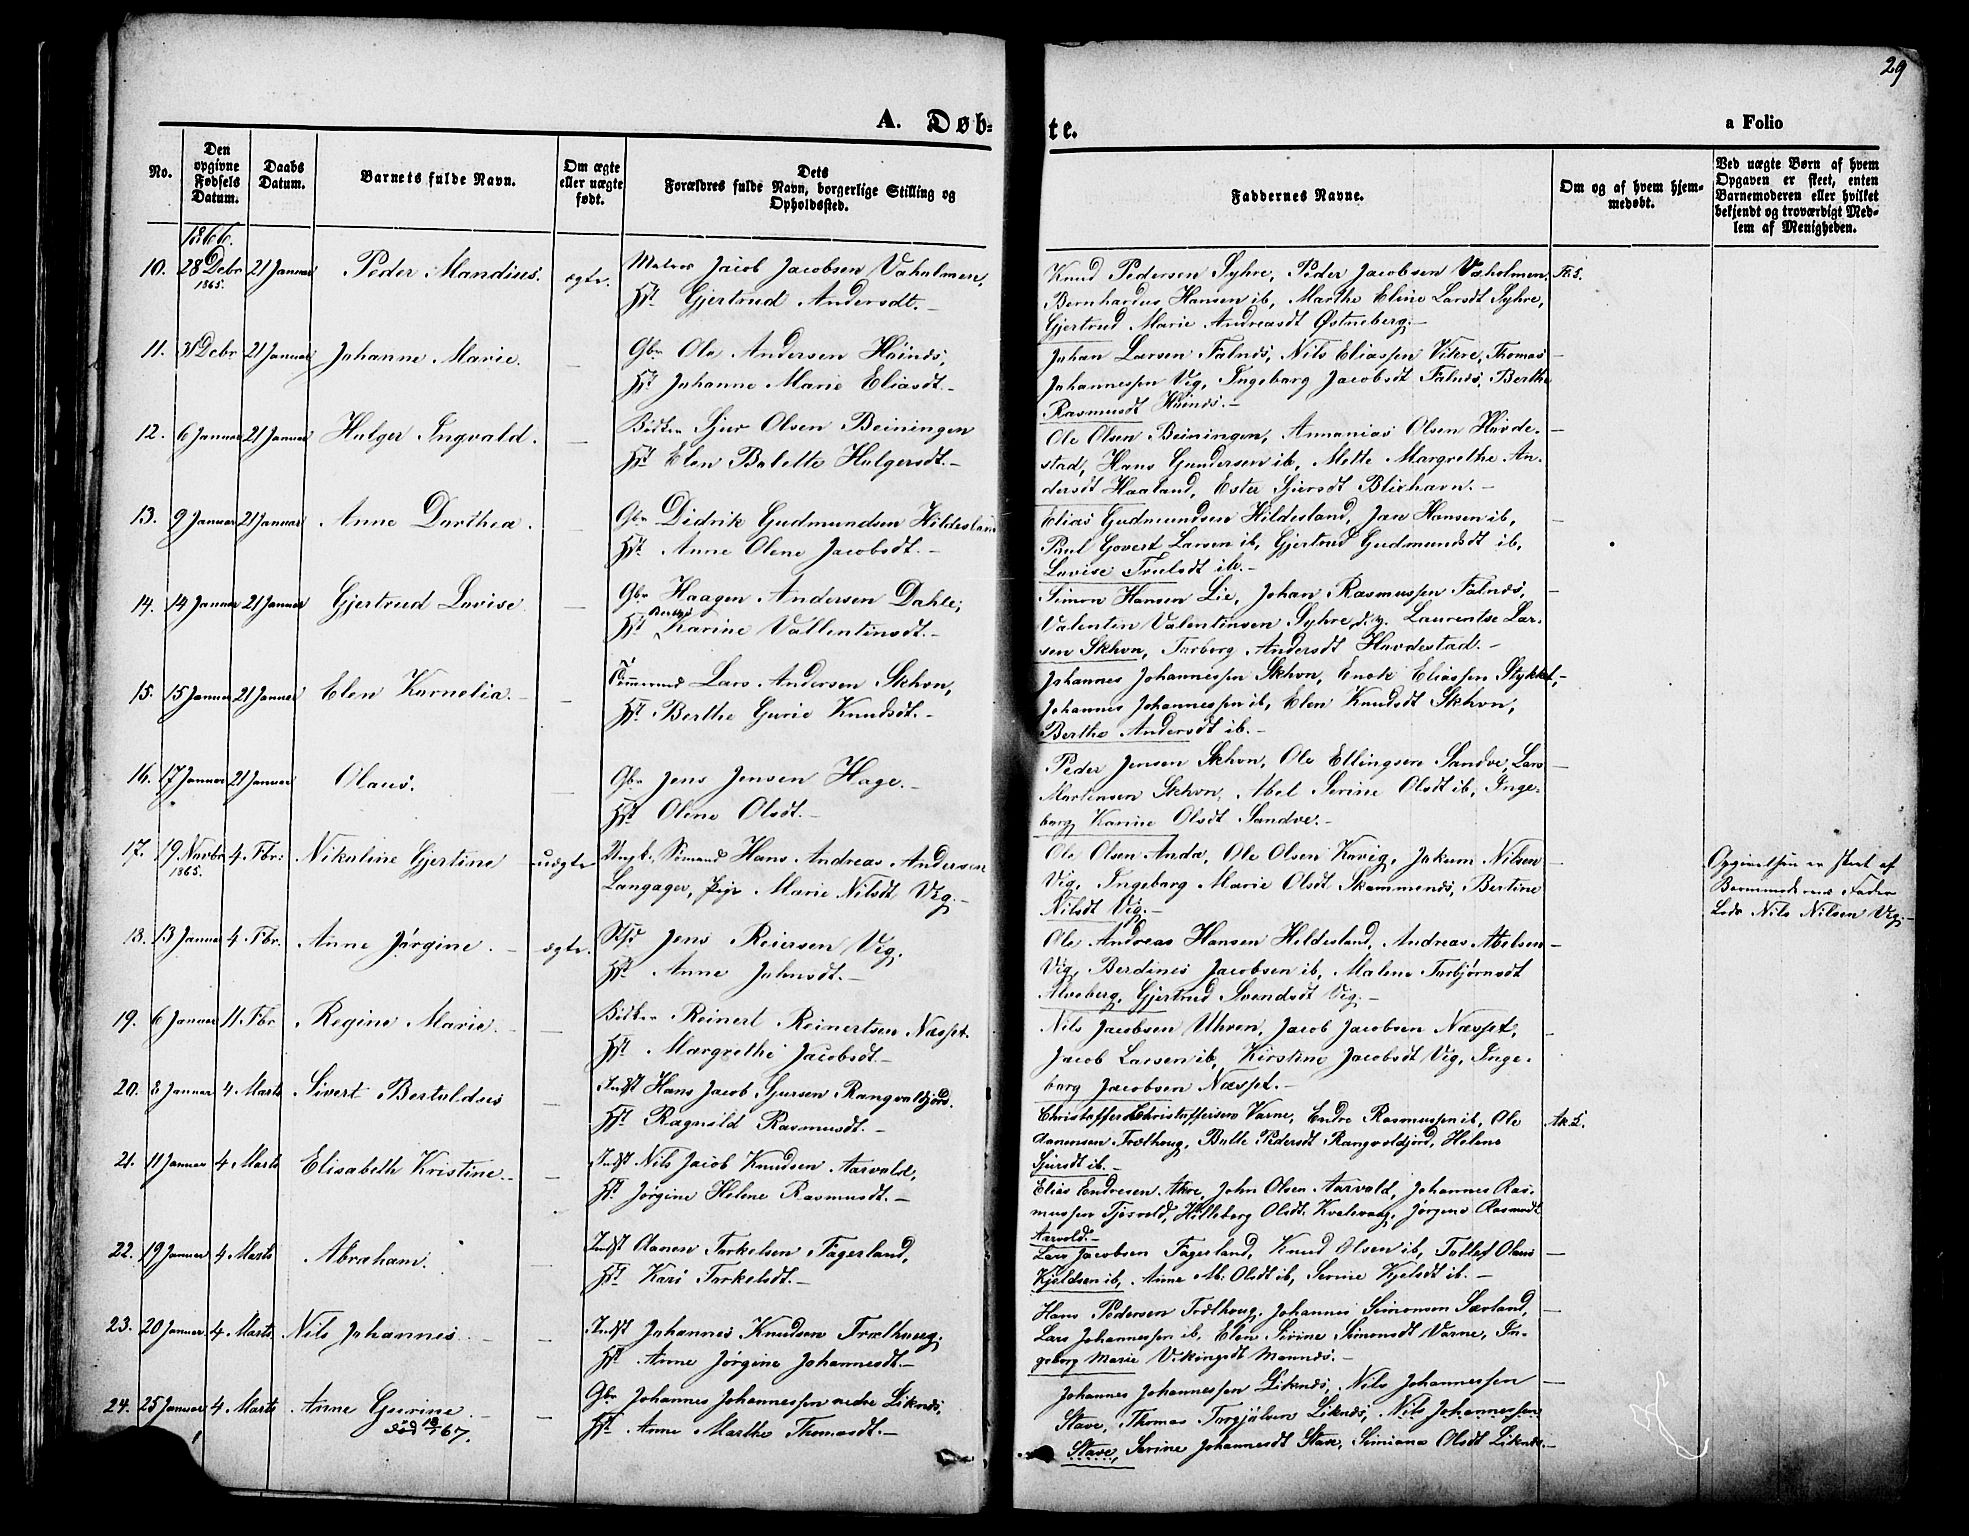 29
A. Døb- te.
a Folio
No.
Den opgivne Fødsels Datum.
Daabs Datum.
Barnets fulde Navn.
Om ægte eller uægte født.
Dets Forældres fulde Navn, borgerlige Stilling og Opholdssted.
Faddernes Navne.
Om og af hvem hjemmedøbt.
Ved uægte Børn af hvem Opgaven er skeet, enten Barnemoderen eller hvilket bekjendt og troværdigt Medlem af Menigheden.
1866.
10. 28 Debr 1865. 21 Januar Peder Mandius. ægte. Jacob Jacobsen Vaholmen,
Hst Gjertrud Andersdt.-
Knud Pedersen Syhre, Peder Jacobsen Vaholmen,
Bernhardus Hansen ib, Marthe Eline Larsdt Syhre,
Gjertrud Marie Andreasdt Østneberg.-
11. 31 Debr 21 Januar Johanne Marie. - Gbr Ole Andersen Høinæs,
Hst Johanne Marie Eliasdt.-
Johan Larsen Falnæs, Nils Eliassen Vikre, Thomas -
Johannessen Vig, Ingeborg Jacobsdt Falnæs, Berthe
Rasmusdt Høinæs.-
12. 6 Januar 21 Januar Holger Ingvald. - Bødker Sjur Olsen Beiningen
Hst Elen Bolette Holgersdt.-
Ole Olsen Beiningen, Annanias Olsen Hovde- -
stad, Hans Gundersen ib, Mette Margrethe An-
dersdt Haaland, Ester Sjursdt Blixhavn.-
13. 9 Januar 21 Januar Anne Dorthea. - Gbr Didrik Gudmundsen Hildesland
Hst Anne Olene Jacobsdt.-
Elias Gudmundsen Hildesland, Jan Hansen ib, -
Paul Govert Larsen ib, Gjertrud Gudmundsdt ib,
Lovise Trulsdt ib.-
14. 14 Januar 21 Januar Gjertrud Lovise - Gbr Haagen Andersen Dahle,
Hst Berthe Karine Vallentinsdt.-
Simon Hansen Lie, Johan Rasmussen Falnæs, -
Valentin Valentinsen Syhre d.y. Laurentse Lar-
sen Skhvn, Torborg Andersdt Hovdestad.-
15. 15 Januar 21 Januar Elen Kornelia. - Tømmermd Lars Andersen Skhvn,
Hst Berthe Gurie Knudsdt.-
Johannes Johannessen Skhvn, Enok Eliassen Stykket, -
Johannes Johannessen ib, Elen Knudsdt Skhvn,
Berthe Andersdt ib.-
16. 17 Januar 21 Januar Olaus. - Gbr Jens Jensen Hage.-
Hst Olene Olsdt.-
Peder Jensen Skhvn, Ole Ellingsen Sandve, Lars -
Mortensen Skhvn, Abel Serine Olsdt ib, Inge-
borg Karine Olsdt Sandve.-
17. 19 Novbr 1865. 4 Fbr: Nikoline Gjertine uægte Ungk. Sømand Hans Andreas Andersen
Langager, Pige Marie Nilsdt Vig.-
Ole Olsen Anda, Ole Olsen Kavig, Jakum Nilsen -
Vig, Ingeborg Marie Olsdt Skommenæs, Bertine
Nilsdt Vig.-
Opgivelsen er skeet af
Barnmoderens Fader
Lods Nils Nilsen Vig.-
18. 13 Januar 4 Fbr. Anne Jørgine. - ægte. Jens Reiersen Vig.
Hst Anne Johnsdt.-
Ole Andreas Hansen Hildesland, Andreas Abelsen -
Vig, Berdines Jacobsen ib, Malene Torbjørnsdt
Alveberg, Gjertrud Svendsdt Vig.-
19. 6 Januar 11. Fbr Regine Marie. - Bødker Reinert Reinertsen Næsset.
Hst Margrethe Jacobsdt.-
Nils Jacobsen Uhren, Jacob Jacobsen Næsset, -
Jacob Larsen ib, Kirstine Jacobsdt Vig, Inge-
borg Jacobsen Næsset.-
20. 8 Januar 4 Marts Sivert Bertoldus - Indst Hans Jacob Sjursen Rangvaldjord.
Hst Ragnild Rasmusdt.-
Christoffer Christoffersen Varne, Endre Rasmussen ib, Ole
Aanensen Trælhoug, Bolle Pedersdt Rangvoldjord, Helene
Sjursdt ib.-
21. 11 Januar 4 Marts Elisabeth Kristine.- - Indst Nils Jacob Knudsen Aarvold,
Hst Jørgine Helene Rasmusdt.-
Elias Endresen Akre, John Olsen Aarvold, Johannes Ras-
mussen Tjøsvold, Helleborg Olsdt Kvalevaag, Jørgine Rasmusdt
Aarvold.-
22. 19 Januar 4 Marts Abraham. - Indst Aanen Torkelsen Fagerland,
Hst Kari Torkelsdt.-
Lars Jacobsen Fagerland, Knud Olsen ib, Tollef Olaus -
Kjeldsen ib, Anne M. Olsdt ib, Serine Kjelsdt ib.-
23. 20 Januar 4 Marts Nils Johannes. - Indst Johannes Knudsen Trælhoug.
Hst Anne Jørgine Johannesdt.-
Hans Pedersen Trælhoug, Johannes Simonsen Sævland, -
Lars Johannessen ib, Elen Sirine Simonsdt Varne, In-
geborg Marie Vikingsdt Mannæs.-
24. 25 Januar 4 Marts Anne Gurine - Gbr Johannes Johannessen nedre Liknæs,
død 18/1 67. Hst Anne Marthe Thomasdt.-
Johannes Johannessen Liknæs, Nils Johannessen -
Stave, Thomas Torgjulsen Liknæs, Nils Johannessen
Stave, Serine Johannesdt Stave, Simiana Olsdt Liknæs.-